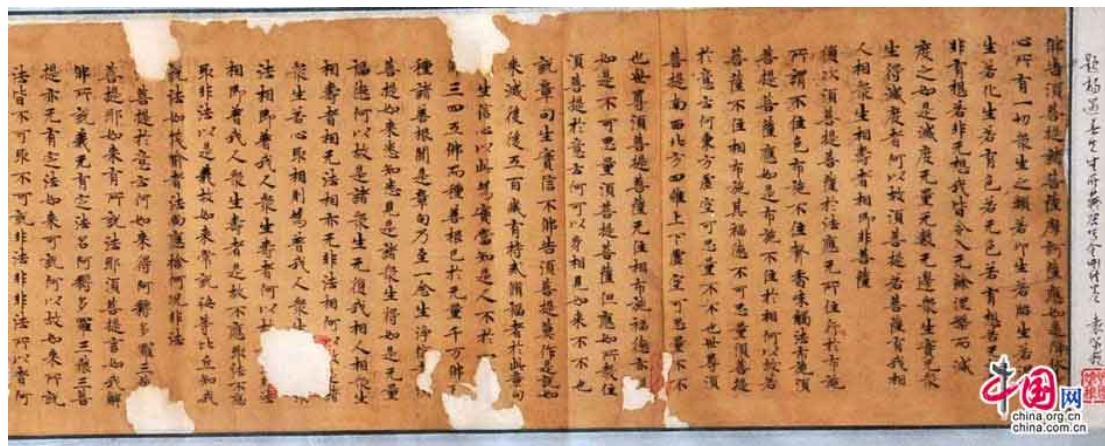 佛告須菩提諸菩薩摩訶薩應如是降
心所有一切眾生之類若卵生若胎生若
生若化生若有色若无色若有想若
非有想若非无想我皆令入无餘涅槃而滅
度之如是滅度无量无數无邊眾生實无眾
生得滅度者何以故須菩提若菩薩有我相
人相眾生相壽者相即非菩薩
復次須菩提菩薩於法應无所住行於布施
所謂不住色布施不住聲香味觸法布施須
菩提菩薩應如是布施不住於相何以故若
菩薩不住相布施其福德不可思量須菩提
於意云何東方虛空可思量不不也世尊須
菩提南西北方四維上下虛空可思量不不
也世尊須菩提菩薩无住相布施福德亦
如是不可思量須菩提菩薩但應如所教住
須菩提於意云何可以身相見如來不不也
說章句生實信不佛告須菩提莫作是說如
來滅後後五百歲有持戒脩福者於此章句
生信心以此為實當知是人不於一
三四五佛而種善根已於无量千万佛
種諸善根聞是章句乃至一念生淨
菩提如來悉知悉見是諸眾生得如是无量
福德何以故是諸眾生无復我相人相眾生
相壽者相无法相亦无非法相何以故 諸
眾生若心取相則為著我人眾生
法相即著我人眾生壽者何以
相即著我人眾生壽者是故不應取法不應
取非法以是義故如來常說汝等比丘知我
說法如筏喻者法尚應捨何況非法
菩提於意云何如來得阿耨多羅三
菩提耶如來有所說法耶須菩提言如我解
佛所說義无有定法名阿耨多羅三藐三菩
提亦无有定法如來可說何以故如來所說
法皆不可取不可說非法非非法所以者何
中国网
china.org.cn
china.com.cn